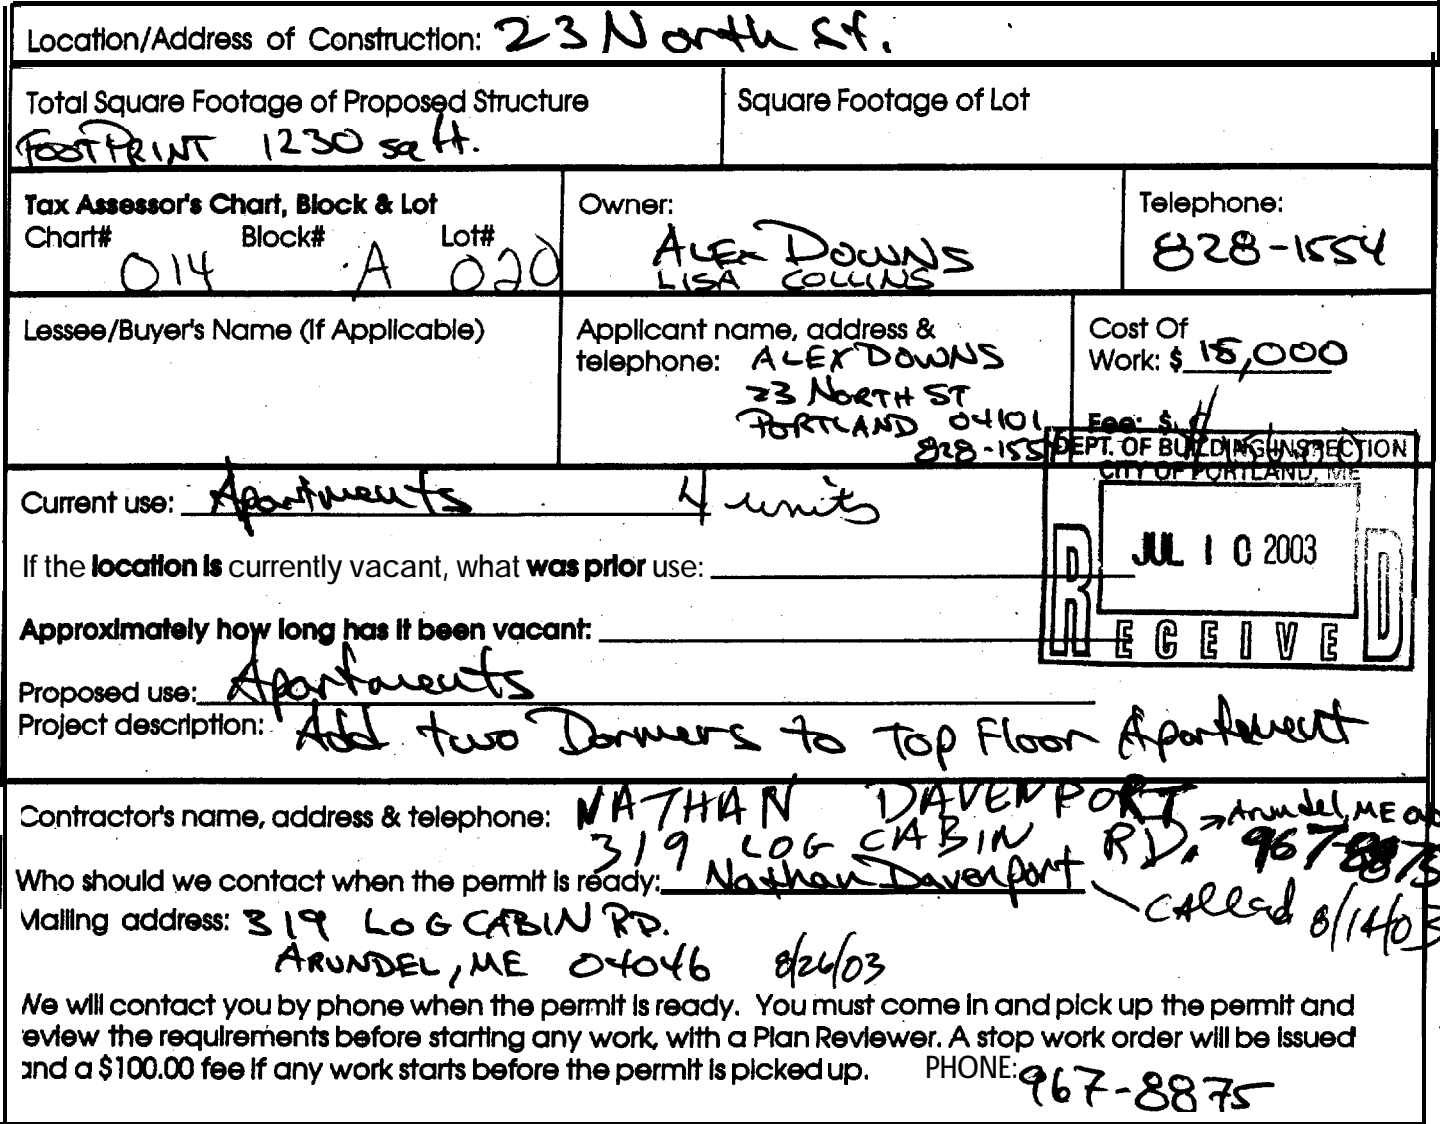 Location/Address of Construction: 23 North St.
Total Square Footage of Proposed Structure
FOOTPRINT 1230 sq ft.
Square Footage of Lot
Tax Assessor's Chart, Block & Lot
Chart# Block# Lot#
014 A 020
Owner:
ALEX DOWNS
LISA COLLINS
Telephone:
828-1554
Lessee/Buyer's Name (If Applicable)
Applicant name, address &
telephone: ALEX DOWNS
23 NORTH ST
PORTLAND 04101
828-155
Cost Of
Work: $ 15,000
Fee: $
DEPT. OF BUILDING INSPECTION
CITY OF PORTLAND, ME
JUL 10 2003
RECEIVED
Current use: Apartments 4 units
If the location is currently vacant, what was prior use:
Approximately how long has it been vacant:
Proposed use: Apartments
Project description: Add two Dormers to Top Floor Apartment
Contractor's name, address & telephone: NATHAN DAVENPORT
319 LOG CABIN RD. Arundel, ME
967-8875
Who should we contact when the permit is ready: Nathan Davenport
Called 8/14/03
Mailing address: 319 LOG CABIN RD.
ARUNDEL, ME 04046 8/26/03
We will contact you by phone when the permit is ready. You must come in and pick up the permit and
review the requirements before starting any work, with a Plan Reviewer. A stop work order will be issued
and a $100.00 fee if any work starts before the permit is picked up. PHONE: 967-8875